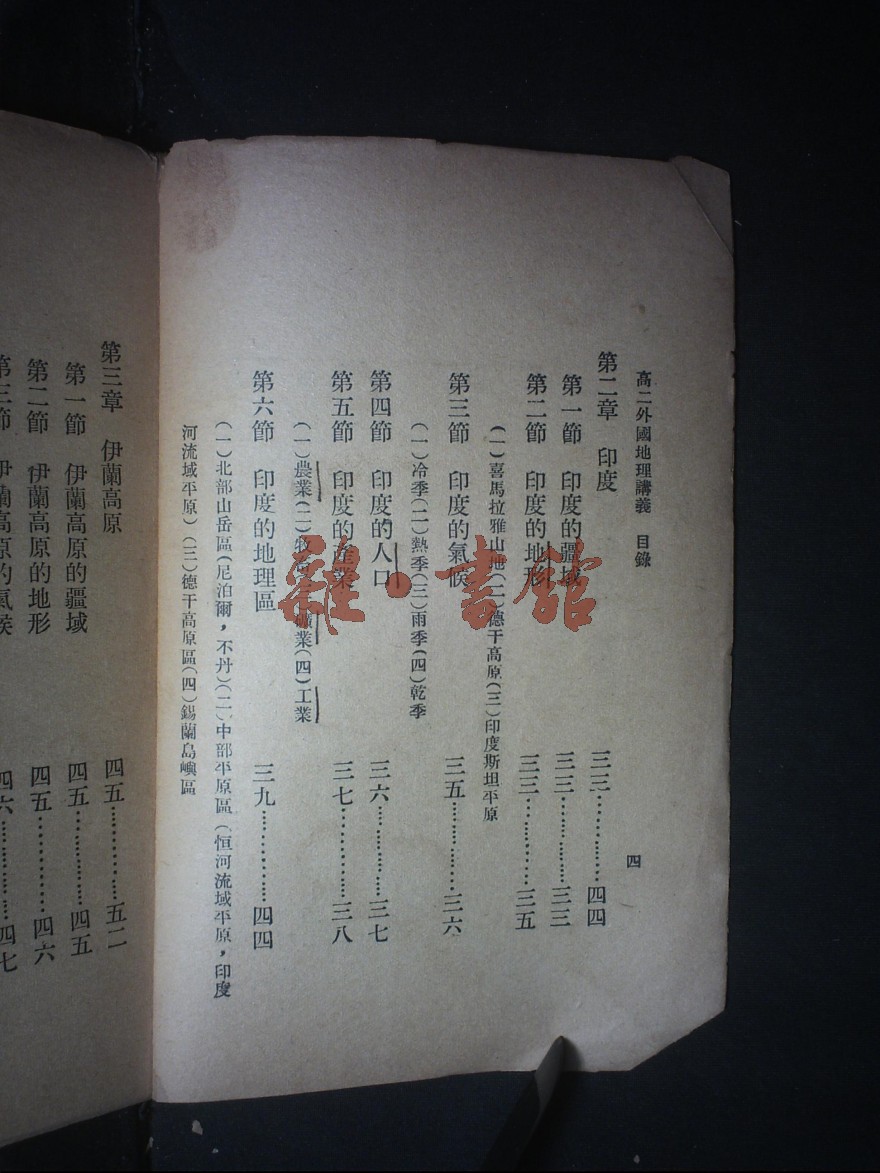 高二外國地理講義　目錄　四
第二章　印度　三三……………四四
第一節　印度的疆域　三三……………三三
第二節　印度的地形　三三……………三五
(一)喜馬拉雅山地(二)德干高原(三)印度斯坦平原
第三節　印度的氣候　三五……………三六
(一)冷季(二)熱季(三)雨季(四)乾季
第四節　印度的人口　三六……………三七
第五節　印度的產業　三七……………三八
(一)農業(二)牧畜(三)礦業(四)工業
第六節　印度的地理區　三九……………四四
(一)北部山岳區(尼泊爾，不丹)(二)中部平原區(恒河流域平原，印度
河流域平原)(三)德干高原區(四)錫蘭島嶼區
第三章　伊蘭高原　四五……………五二
第一節　伊蘭高原的疆域　四五……………四五
第二節　伊蘭高原的地形　四五……………四六
第三節　伊蘭高原的氣候　四六……………四七
雜·書館